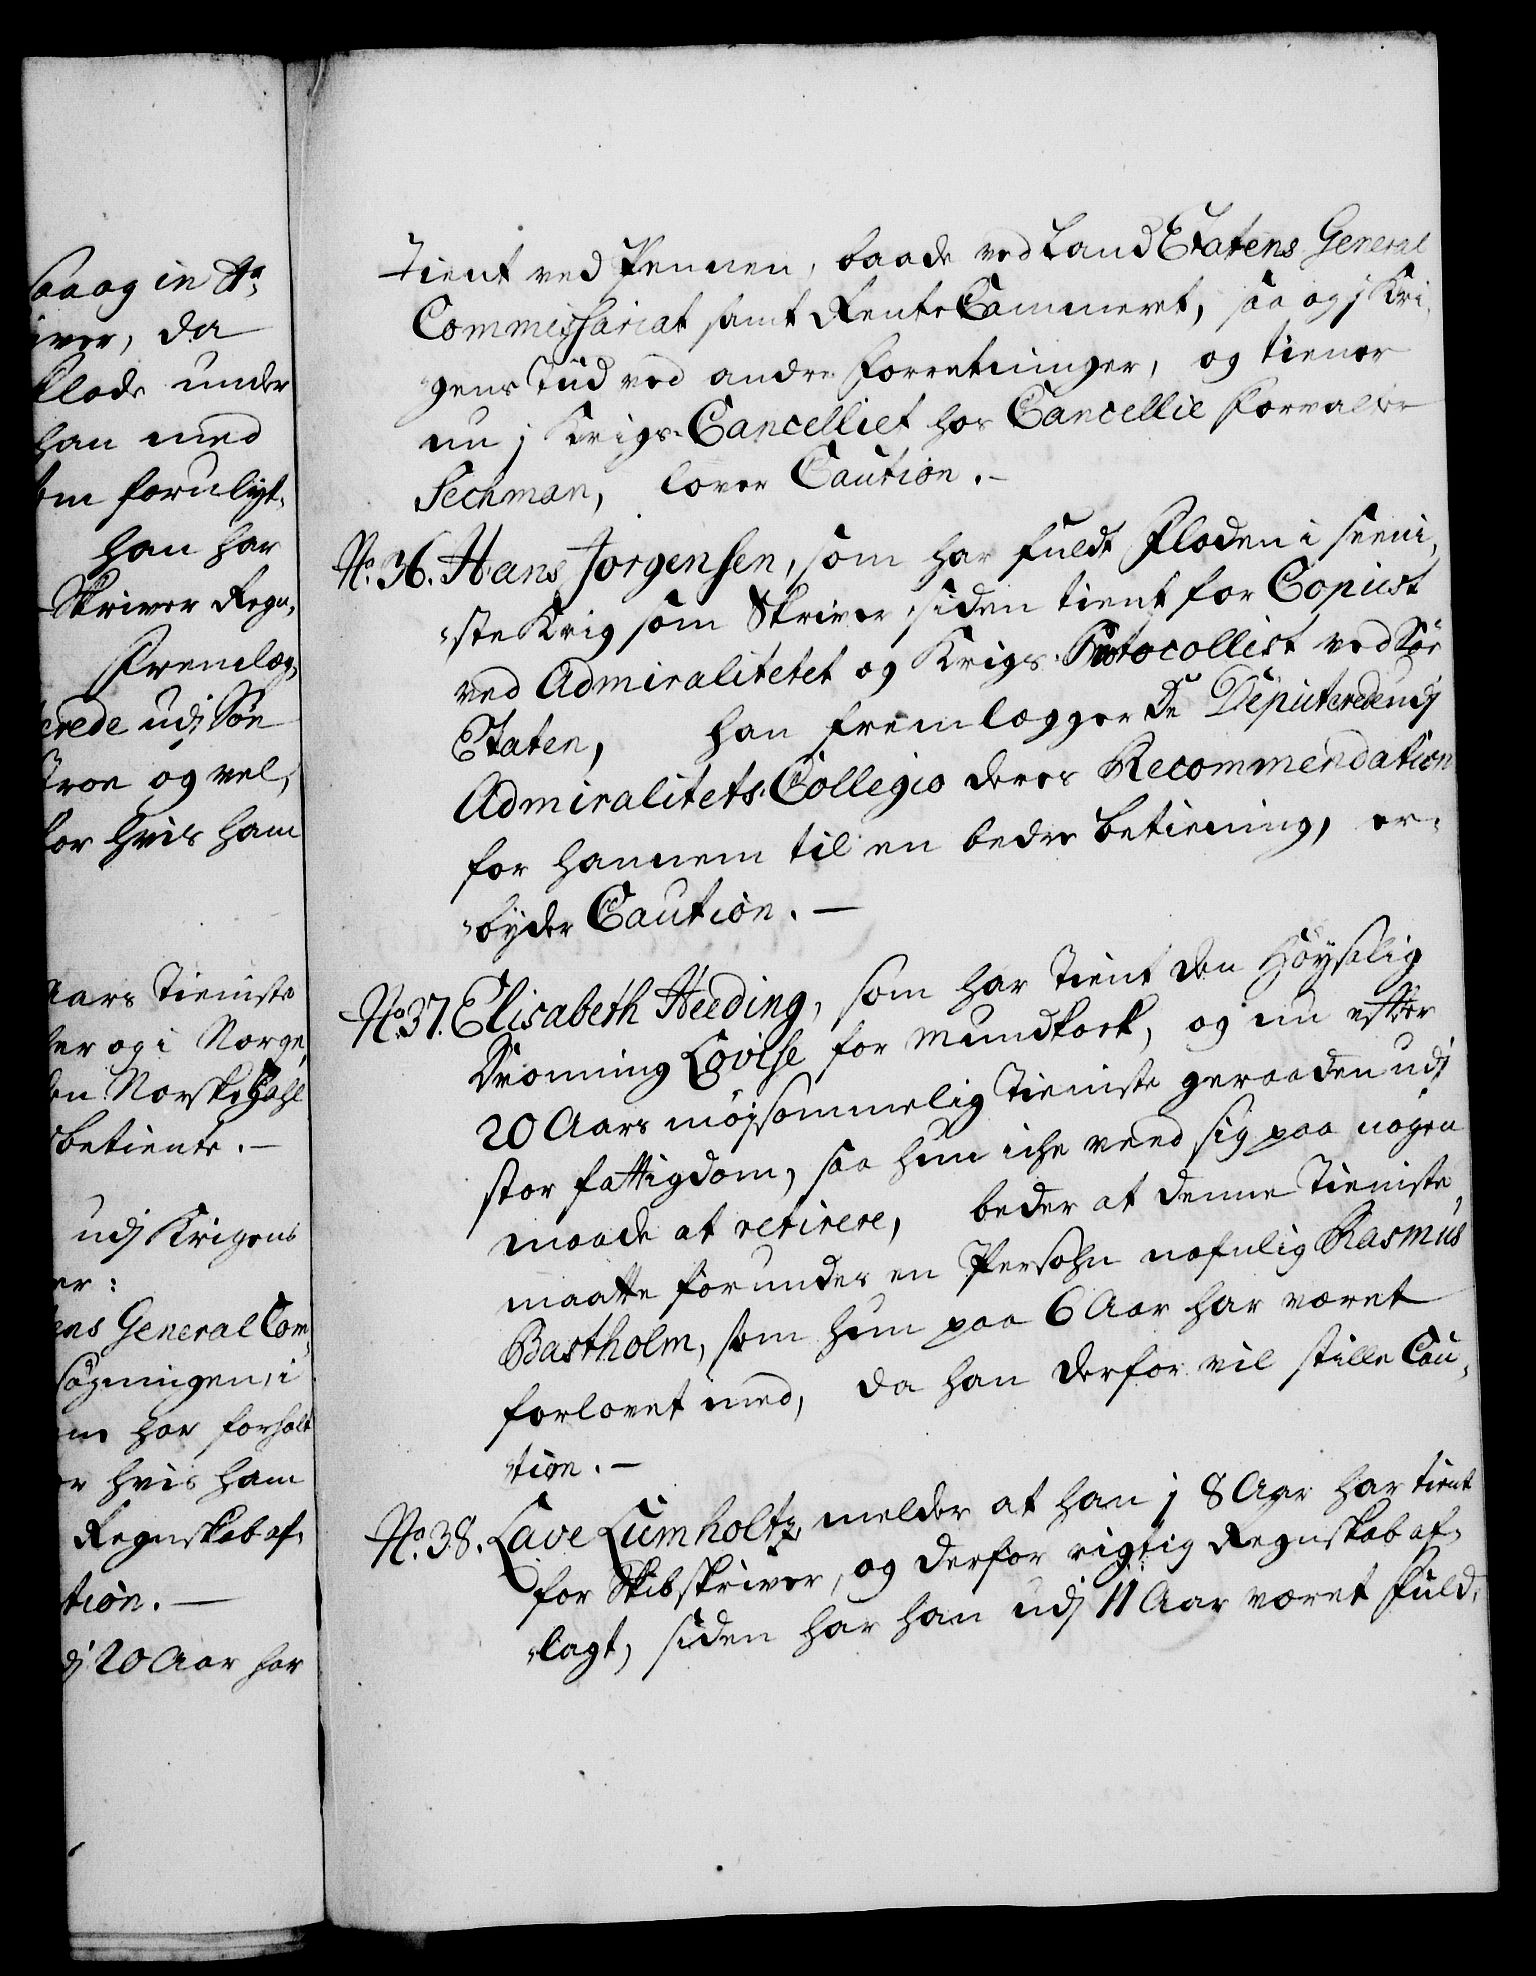 Saa og in Aº
iver, da
Flode under
han med
om foruligt,
han har
Skriver Regn,
Fremlæg,
erede udj Søe
Troe og vel,
for hvis ham
Aars Tieniste
er og i Norge,
en Norske Zahl
betiente.
udj Krigens
er:
ens General Com,
søgningen, i
har forholt
r hvis ham
Regnskab af,
tion.
dj 20 Aar har
Tient ved Pennen, baade ved Land Etatens General
Commissariat samt Rente Cammeret, saa og j Kri,
gens Tiid ved andre Forretninger, og tiener
nu j Krigs-Cancelliet hos Cancellie Forvalter
Sechman, lover Caution.
No. 36. Hans Jørgensen, som har fuldt Floden i seeni,
ste Krig som Skriver, siden tient for Copiist
ved Admiralitetet og Krigs-Protocollist ved Søe
Etaten, han fremlægger De Deputerede udj
Admiralitets-Collegio deres Recommendation
for hannem til en bedre betiening, er,
byder Caution.
No. 37. Elisabeth Heeding, som har Tient den Høysalig
Dronning Lovise for Mundkock, og nu efter
20 Aars møysommelig Tieniste geraaden udj
stor fattigdom, saa hun iche veed sig paa nogen
maade at retirere, beder at denne Tieniste
maatte forundes en Persohn nafnlig Rasmus
Bastholm, som hun paa 6 Aar har været
forlovet med, da han derfor vil stille Cau,
tion.
No. 38. Lave Lumholtz, melder at han j 8 Aar har tient
for Skibskriver, og derfor rigtig Regnskab af,
lagt, siden har han udj 11 Aar været Fuld,